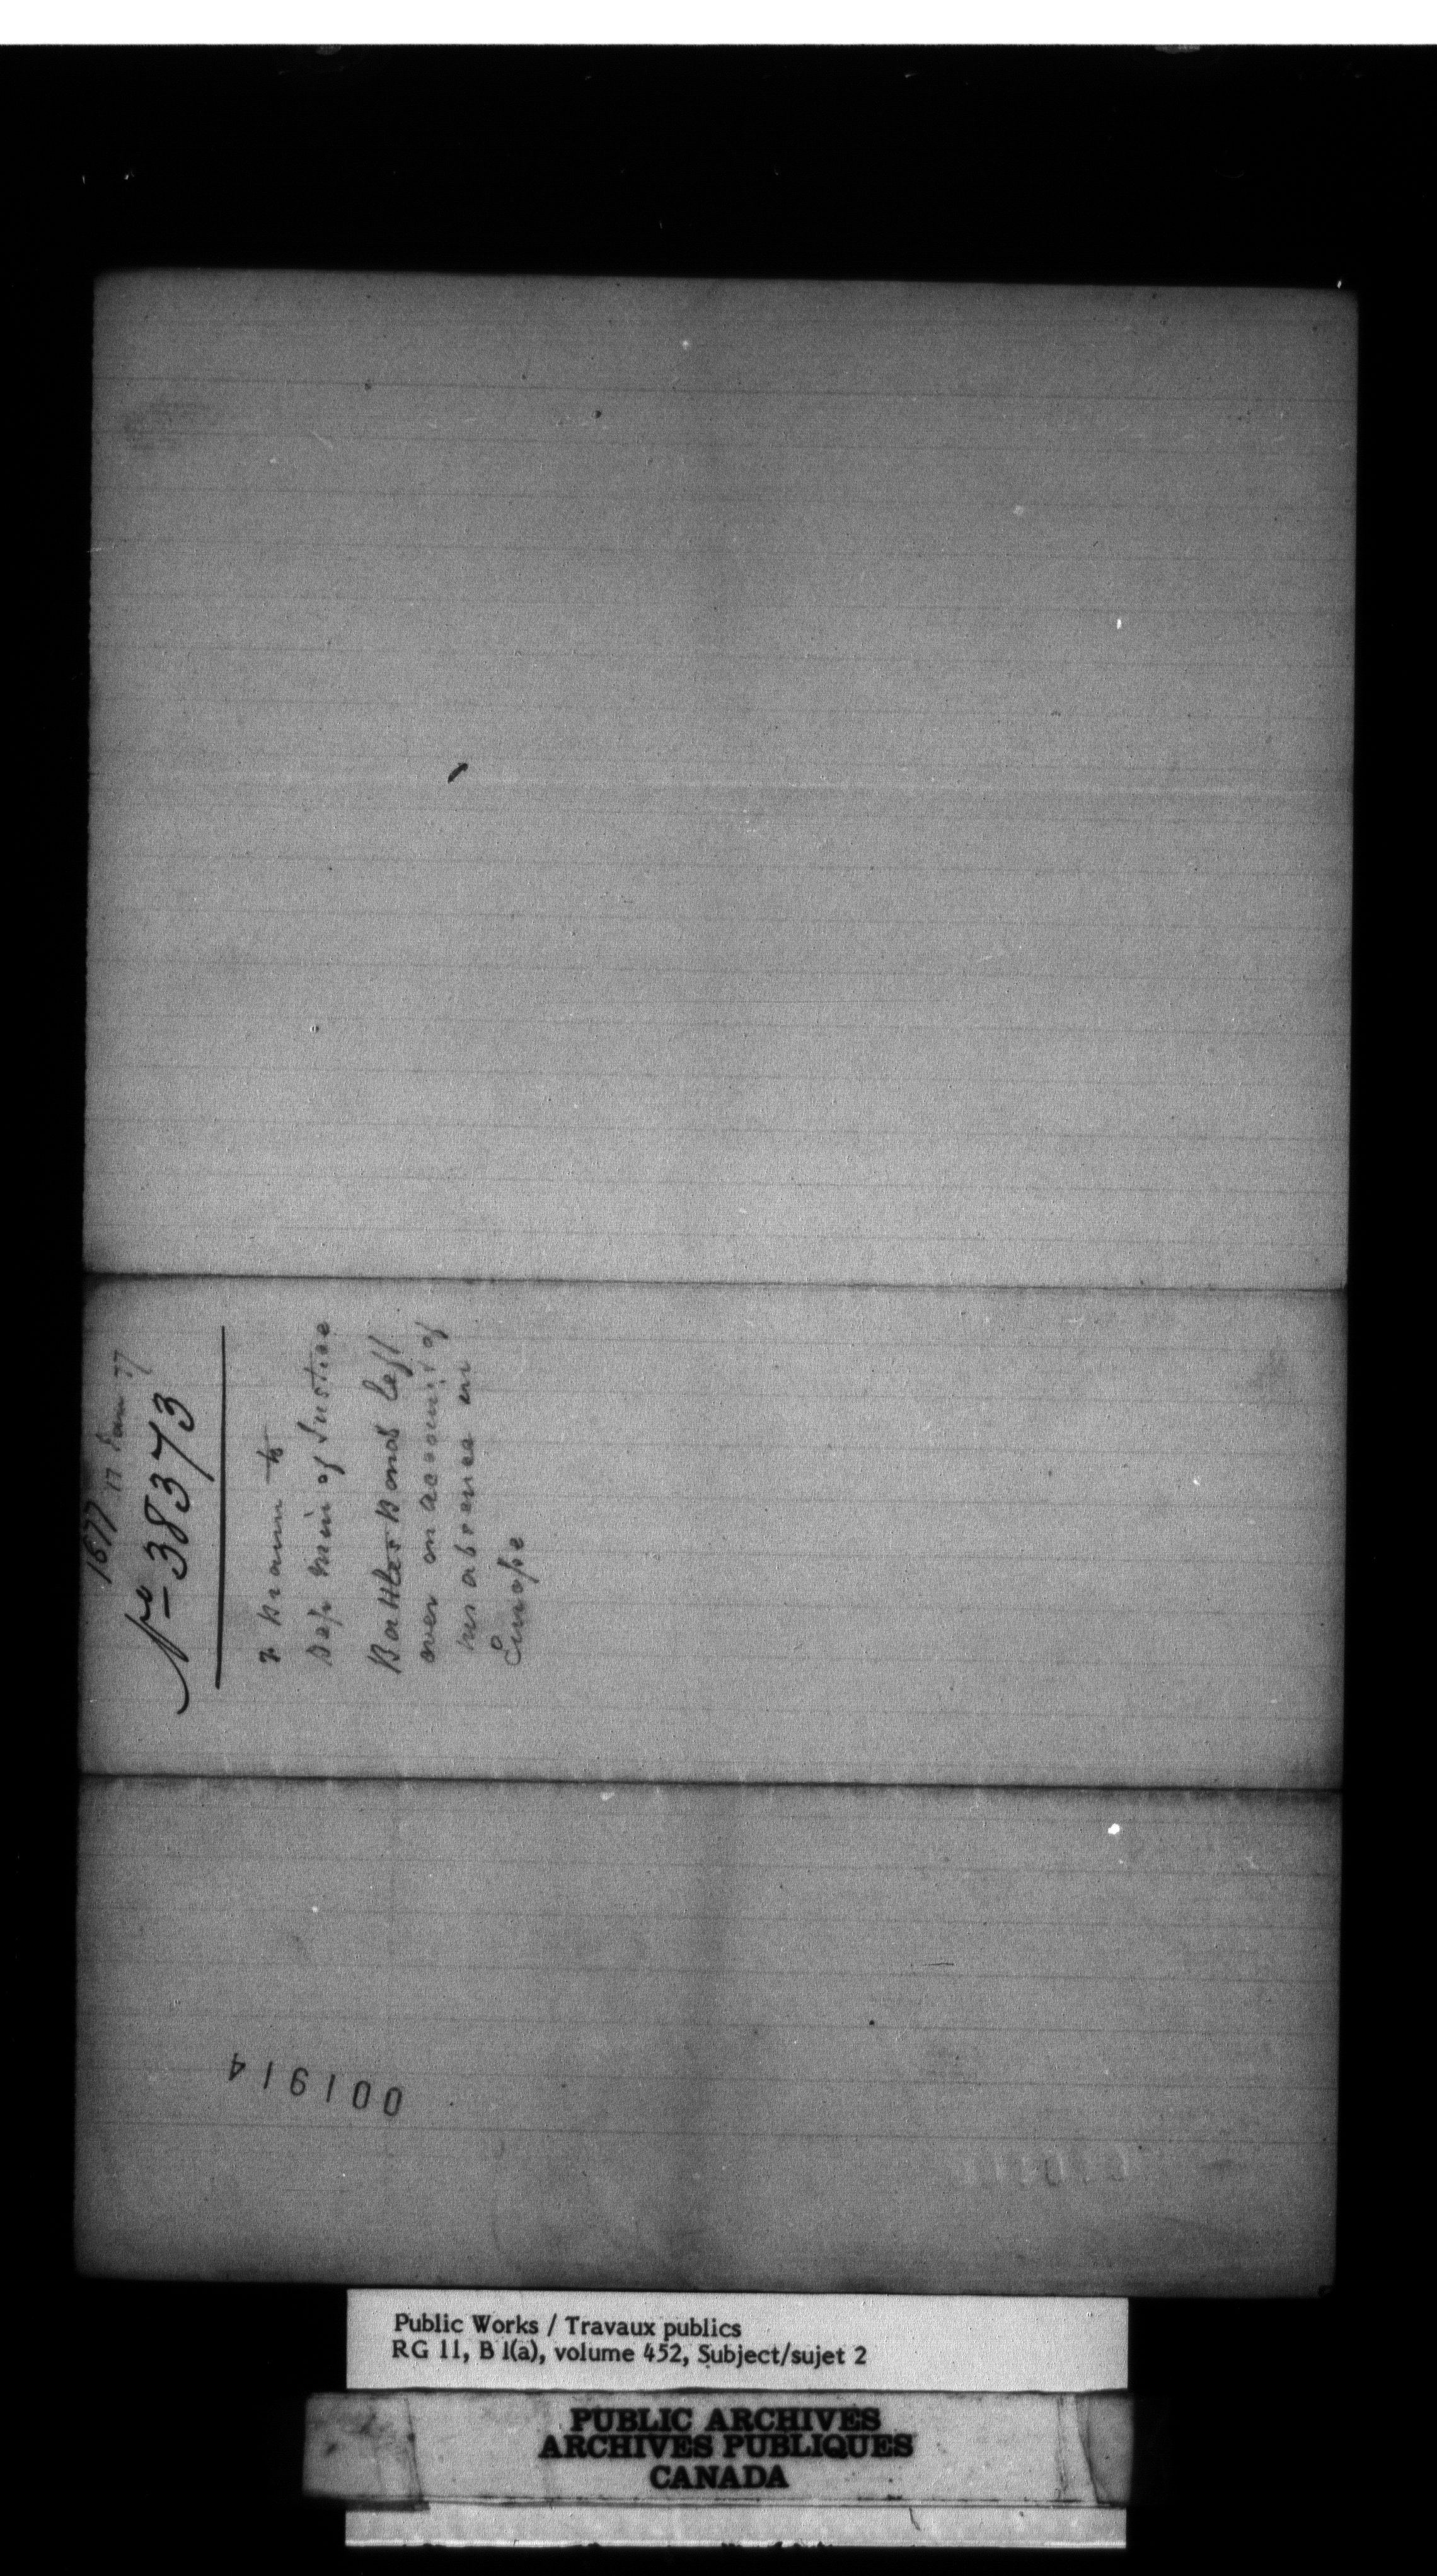 1877 17 Jan 77
No 38373
F Braun to
Dep Min of Justice
Battles Bonds left
over on account of
his absence in
Europe
001914
Public Works / Travaux publics
RG 11, B 1(a), volume 452, Subject/sujet 2
PUBLIC ARCHIVES
ARCHIVES PUBLIQUES
CANADA